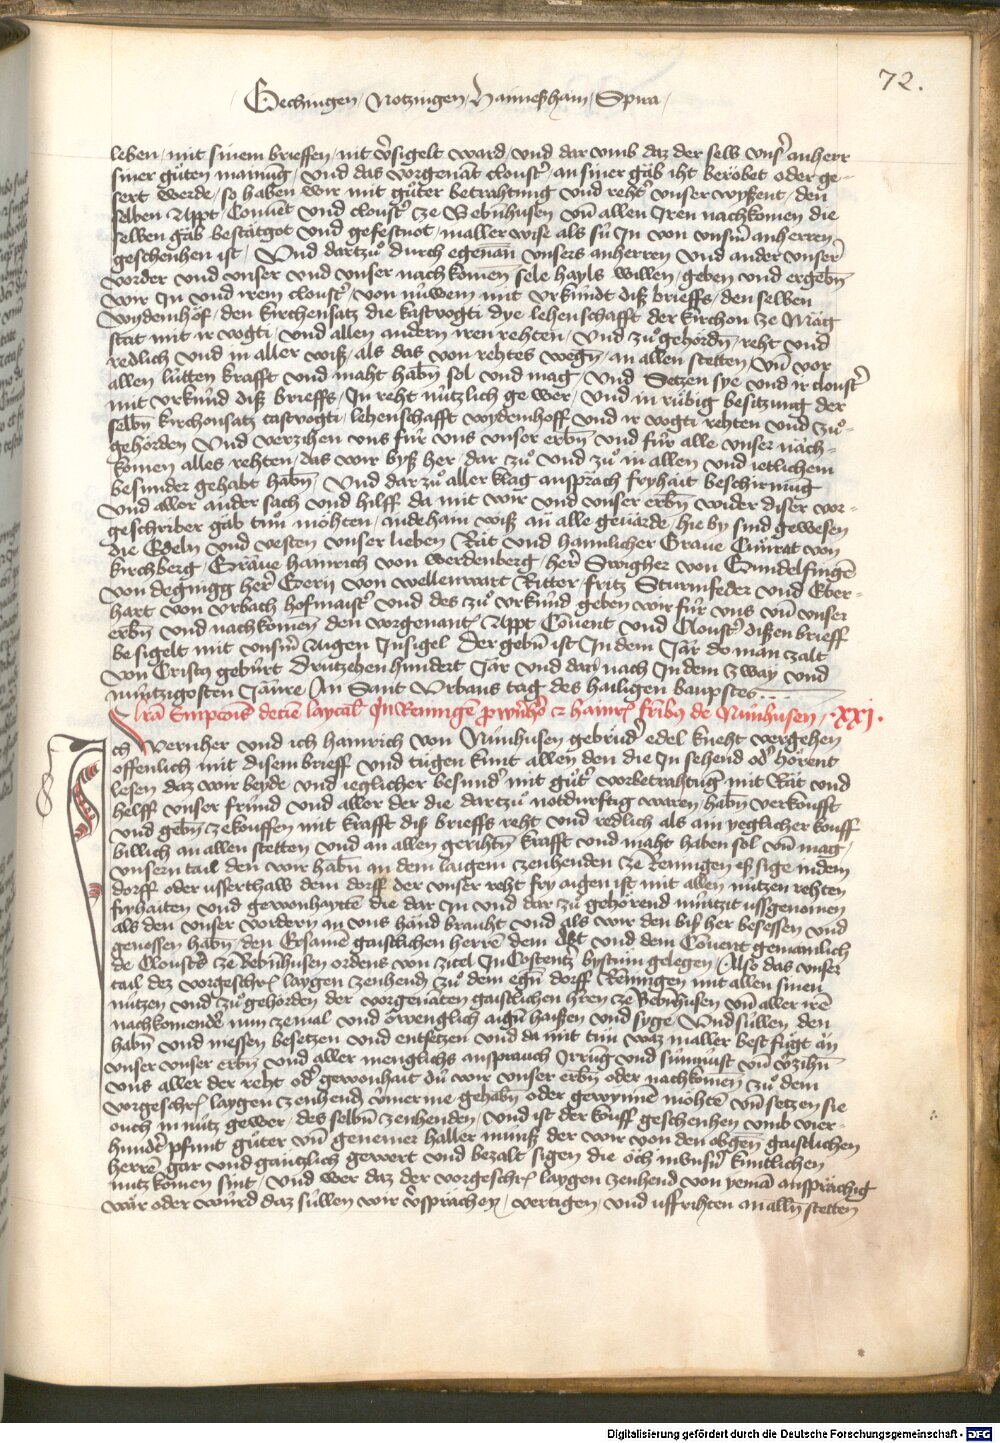 72.
Gechingen / Notzingen / Hainnesshain / Spira /
leben / mit sinem brieffen / nit v̾sigelt ward / vnd dar vmb daz der selb vns̾ anherr
siner gůten mainūg / vnd das vorgenāt cloust̾ / an siner gäb iht berobet oder ge-
sert werde / so haben wir mit gůter betrahtung vnd reht̾ vnser wyssent / den
selben Appt / Conuēt vnd cloust̾ ze Bebn̄husen vn̄ allen Iren nachkomen die
selben gäb bestätgot vnd gefestnot / in aller wise als sū In von vnsm̄ anherren
geschenhen ist / Vnd dartzů durch egenan̄ vnsers anherren vnd ander vnser̾
vorder vnd vnser vnd vnser nachkomen̄ sele hayls willen / geben vnd ergebn̄
wir In vnd irem cloust̾ / von nüwem mit vrkündt diß brieffs / den selben
wydemhof / den kirchensatz die kastvogti dye lehenschafft der kirchon ze Mäg
stat mit ir vogti / vnd allen andern iren rehten / vnd zů gehördn̄ / reht vnd
redlich vnd in aller wiß / als das von rehtes wegn̄ / an allen stetten / vn̄ vor
allen lütten krafft vnd maht habn̄ sol vnd mag / Vnd Setzen sye vnd ir cloust̾
mit vrkünd diß brieffs / In reht nützlich ge wer / vnd in rübig besitzung der
selbn̄ kirchonsatz castvogti / lehenschafft wydemhoff vnd ir vogti rehten vnd zů-
gehörden Vnd verzihen vns für vns vnser erbn̄ vnd für alle vnser näch-
komen alles rehten / das wir byß her / dar zů vnd zů in allen vnd ietlichem
besunder gehabt habn̄ / Vnd dar zů aller klag ansprach fryhait beschirmūg
vnd aller ander sach vnd hilff da mit wir vnd vnser erbn̄ wider diser vor-
geschriber gäb tůn möhten / an dehain wiß än alle geuärde / hie by sind gewesen
die Edeln vnd vesten vnser lieben Rät vnd hainlicher Graue Cůnrat von
kirchberg / Graue hainrich von werdenberg / her̾ Swigher von Gundelfingē
von degnigg her̾ Gerij von wellenwart Ritter / fritz Sturmfeder vnd Eber-
hart von vrbach hofmaist̾ vnd des zů vrkünd geben wir für vns vn̄ vnser
erbn̄ vnd nachkomen̄ den vorgenant̾ Appt Conent vnd Cloust̾ dißen brieff
be sigelt mit vnsm̄ Aigen Insigel Der gebn̄ ist In dem Jär do man zalt
von Cristus geburt Drützehen hundert Jar vnd dar nach In dem zway vnd
nüntzigosten Jäure An Sant Vrbans tag des hailigen baupstes
Lrā Empcōis decīe laycal̾ In Renningē p̱ wern̾hō & hainr̾ frībs̄ de Nūnhusen / · XXI ·
Ich Wernher vnd ich hainrich von Nünhusen gebrüd̾ edel kneht vergehen
offenlich mit disem brieff vnd tügen kunt allen den die In sehend od̾ hörent
lesen daz wir beyde vnd ieglicher besund̾ mit gůt̾ vorbetrahtūg mit Rät vnd
helff vnser fründ vnd aller der die dartzů notdurftig waren / habn̄ verkoufft
vnd gebn̄ ze kouffen mit krafft diß brieffs reht vnd redlich als ain yeglicher kouff
billich an allen stetten vnd an allen gerihtn̄ krafft vnd maht haben sol vn̄ mag /
vnsern tail den wir habn̄ an dem laigem zenhenden ze Rennigen eß sige in dem
dorff oder usserthalb dem dorff der vnser reht fry aigen ist mit allen nützen rehten
fryhaiten vnd gewonhayttē die dar In vnd dar zů gehörend nüntzit ussgenomen
als den vnser vordern an vns händ braucht vnd als wir den biß her besessen vnd
genossen habn̄ / den Ersamē gaistlichen herrē dem Abt vnd dem Conent gemainlich
de Cloust̾s zē Bebn̄husen ordens von zitel In Costentz̾ bystum gelegen / Also das vnser
tail dez vorgeschr̾ laygen zenhend̾ zů dem egn̄ dorff Renningen mit allen sinen
nützen vnd zů gehörden der vorgenäten gaistlichen h̾ren ze Bebnhusen vn̄ aller irē
nachkomendē nun zemal vnd öwenglich aign̄ haissen vnd syge / Vnd süllen den
habn̄ vnd niessen besetzen vnd entsetzen vnd da mit tůn waz in aller best fůgt än
vnser vnser erbn̄ vnd aller menglichs ansprauch Irrūg vnd sūmnust vn̄ v̾zihn̄
vns aller der reht od̾ gewonhait dū wir vnser erbn̄ oder nachkomen̄ zů dem
vorgeschr̾ laygen zenhend̾ v̂merme gehabn̄ oder gewynnē möhtē vn̄ setzen sie
ouch in nütz gewer / des selbn̄ zenhenden / vnd ist der kouff geschenhen vmb vier-
hundē pfunt gůter vn̄ genemer haller münß der wir von den obgen̄ gaistlichen
herrē gar vnd gäntzlich gewert vnd bezalt sigen die öch in vnsn̾ kuntlichen
nutz komen sint / Vnd wer daz der vorgeschr̾ laygen zenhend von yemā ansprächig
wär oder würd daz süllen wir v̾sprächen / vertigen / vnd uffrihten an alln̄ stetten
Digitalisierung gefördert durch die Deutsche Forschungsgemeinschaft - DFG